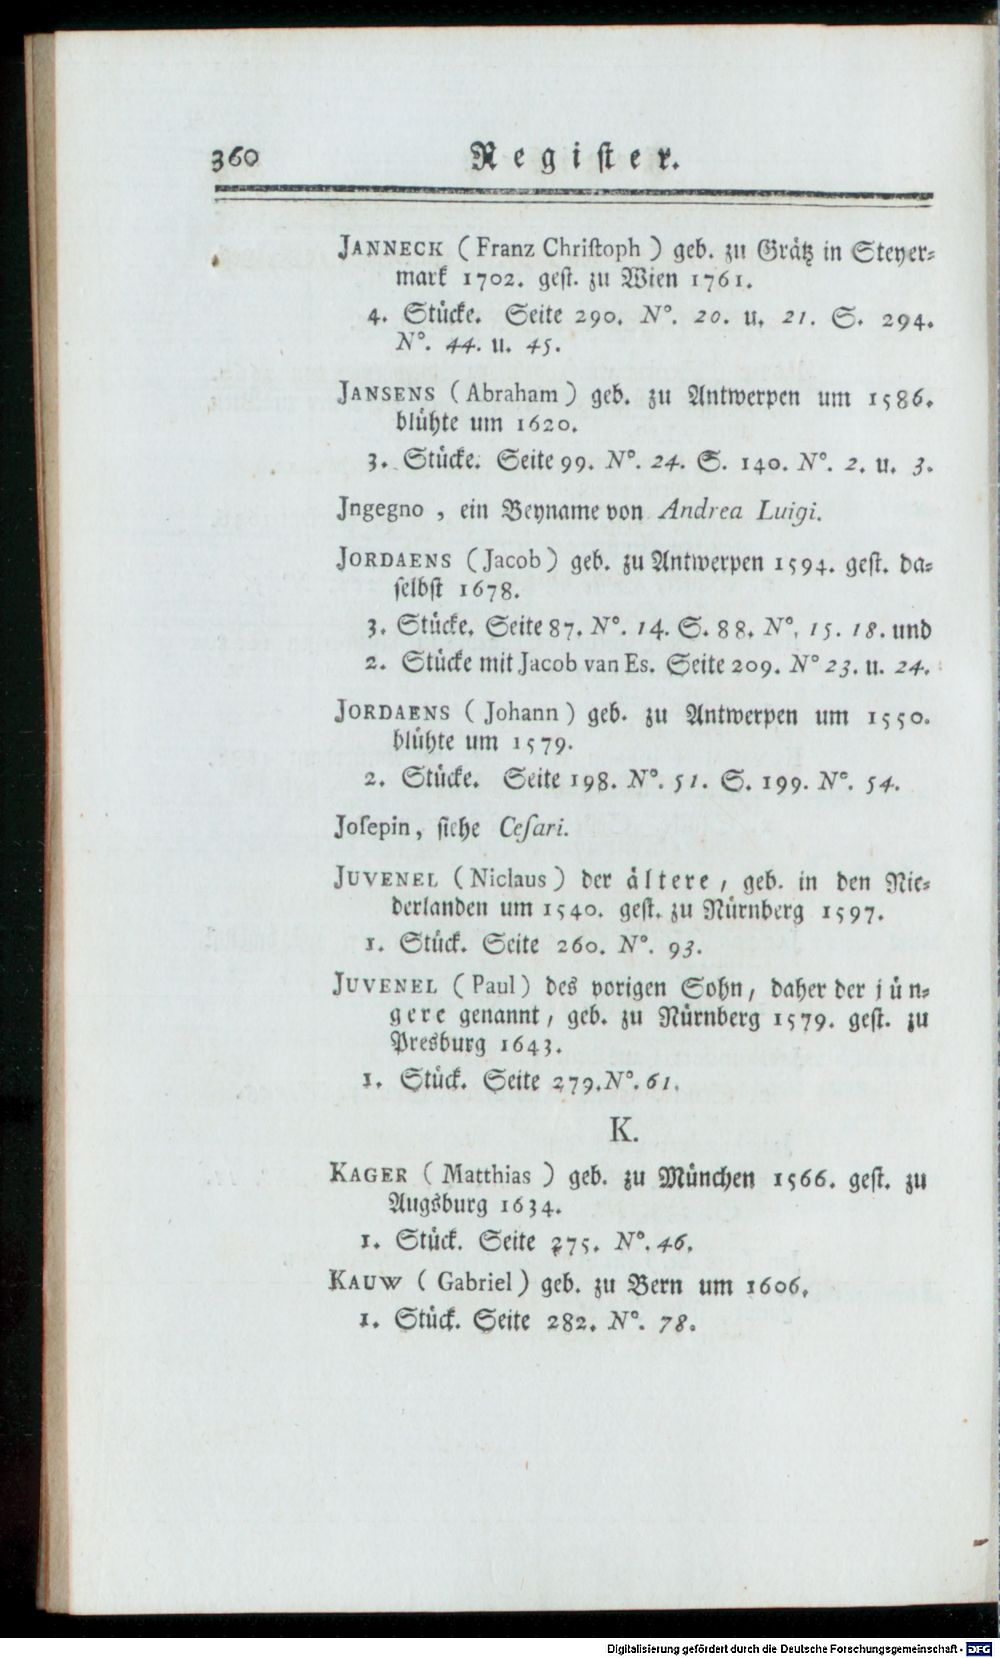 360
Register.
JANNECK (Franz Christoph) geb. zu Grätz in Steyer-
mark 1702. gest. zu Wien 1761.
4. Stücke. Seite 290. N°. 20. u. 21. S. 294.
N°. 44. u. 45.
JANSENS (Abraham) geb. zu Antwerpen um 1586.
blühte um 1620.
3. Stücke. Seite 99. N°. 24. S. 140. N°. 2. u. 3.
Jngegno, ein Beyname von Andrea Luigi.
JORDAENS (Jacob) geb. zu Antwerpen 1594. gest. da-
selbst 1678.
3. Stücke. Seite 87. N°. 14. S. 88. N°. 15. 18. und
2. Stücke mit Jacob van Es. Seite 209. N° 23. u. 24.
JORDAENS (Johann) geb. zu Antwerpen um 1550.
blühte um 1579.
2. Stücke. Seite 198. N°. 51. S. 199. N°. 54.
Joſepin, siehe Ceſari.
JUVENEL (Niclaus) der ältere, geb. in den Nie-
derlanden um 1540. gest. zu Nürnberg 1597.
1. Stück. Seite 260. N°. 93.
JUVENEL (Paul) des vorigen Sohn, daher der jün-
gere genannt, geb. zu Nürnberg 1579. gest. zu
Presburg 1643.
1. Stück. Seite 279. N°. 61.
K.
KAGER (Matthias) geb. zu München 1566. gest. zu
Augsburg 1634.
1. Stück. Seite 275. N°. 46.
KAUW (Gabriel) geb. zu Bern um 1606.
1. Stück. Seite 282. N°. 78.
Digitalisierung gefördert durch die Deutsche Forschungsgemeinschaft - DFG